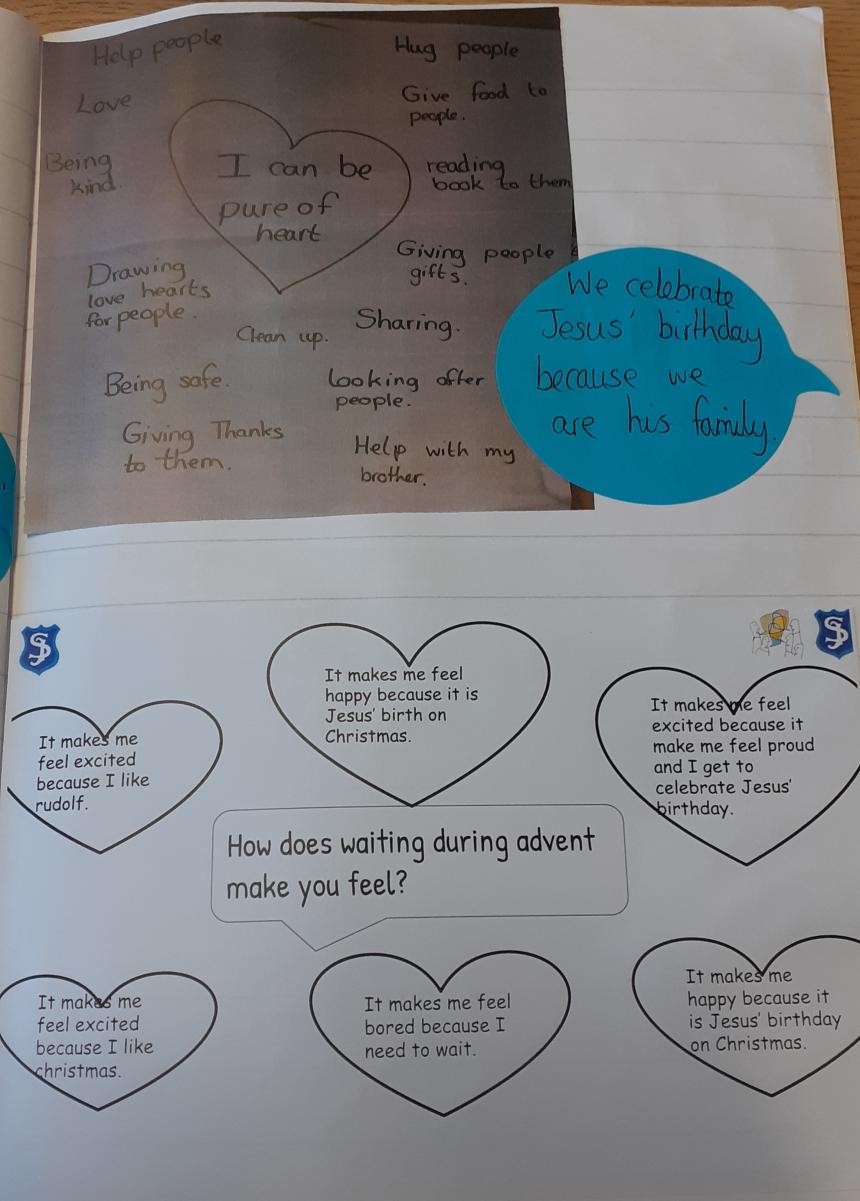 Help people
Love
Being
kind.
Drawing
love hearts
for people.
Clean up.
Being safe.
Giving Thanks
to them.
I can be
pure of
heart
Hug people
Give food to
people.
reading
book to them
Giving people
gifts.
Sharing.
looking after
people.
Help with my
brother.
We celebrate
Jesus' birthday
because we
are his family.
It makes me feel
happy because it is
Jesus' birth on
Christmas.
It makes me
feel excited
because I like
rudolf.
It makes me feel
excited because it
make me feel proud
and I get to
celebrate Jesus'
birthday.
How does waiting during advent
make you feel?
It makes me
feel excited
because I like
christmas.
It makes me feel
bored because I
need to wait.
It makes me
happy because it
is Jesus' birthday
on Christmas.